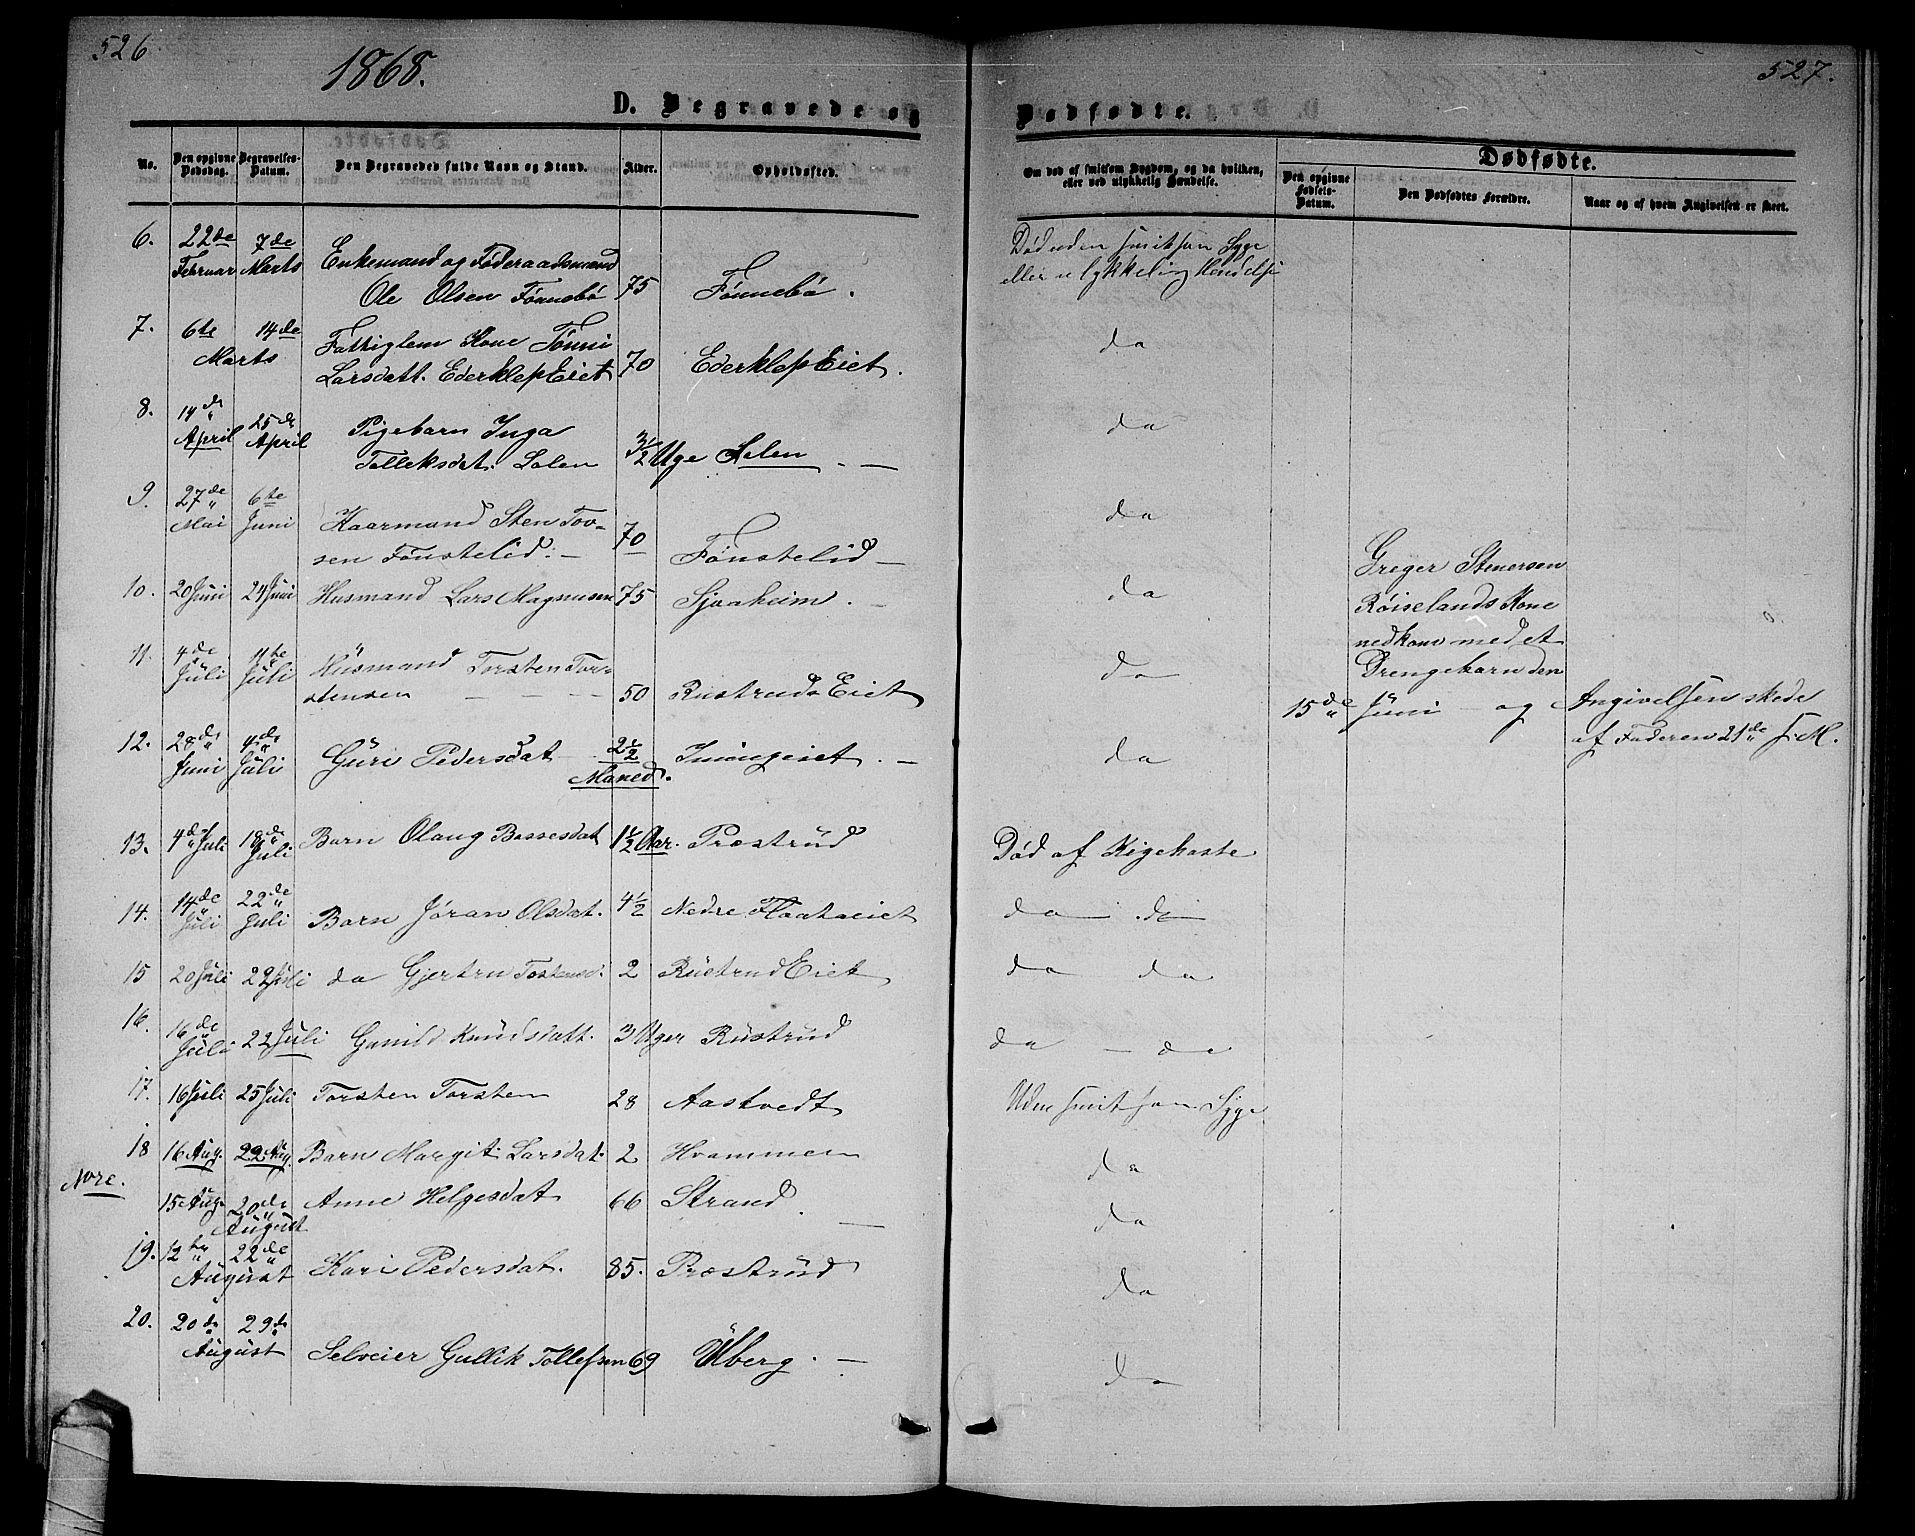 526
1868.
527.
D. Begravede og
Dødfødte.
No.
Den opgivne Dødsdag.
Begravelses-Datum.
Den Begravedes fulde Navn og Stand.
Alder.
Opholdssted.
Om død af smitsom Sygdom, og da hvilken, eller ved ulykkelig Hændelse.
Dødfødte.
Den opgivne Fødsels-Datum.
Den Dødfødtes Forældre.
Naar og af hvem Angivelsen er skeet.
6. 22de 7de
Februar Marts Enkemand og Føderaadsmand
Ole Olsen Fønnebø 75 Fønnebø.
Død uden smitsom Syge
eller ulykkelig Hendelse
7. 6te 14de Fattiglem Kone Tønni
Marts
Larsdatt. EderklepEiet 70 EderklepEiet.
da
8. 14de 25de
April April Pigebarn Inga
Tolleksdat. Solen 3 1/2 Uge Solen. —
da
9. 27de 6te
Mai Juni Kaarmand Sten Tov-
sen Fønstelid. — 70 Fønstelid —
da
10. 20 Juni 24 Juni Husmand Lars Magnusen 75 Sjvaheim. —
da
11. 4de 11te
Juli Juli Husmand Torsten Tor-
stensen — — — 50 RustrudsEiet
da
Greger Stenersen
Røiselands Kone
nedkom med et
Drengebarn den
15de Juni — og Angivelsen skede
af Faderen 21de s. M.
12. 28de 4de
Juni Juli Guri Pedersdat 2 1/2
Maned. Imingeiet. —
da
13. 4de Juli 18de Juli Barn Olaug Bassesdat 1 1/2 Aar. Præstrud
Død af Kigehoste
14. 14de 22de
Juli Juli Barn Jøran Olsdat. 4 1/2 Nedre Flaataeiet
da do
15 20 Juli 22 Juli da Gjertru Tostensd. 2 RustrudEiet
da da
16. 16de
Juli 22 Juli Gunild Knudsdatt. 3 Uger Rustrud
da — da
17. 16 Juli 25 Juli Torsten Torsten 28 Aastvedt
Uden smitsom Syge.
18 16 Aug. 22 Aug. Barn Margit Larsdat. 2 Hvammen
da
Nore.
15 Aug 20de August Anne Helgesdat 66 Strand. —
da
19. 12te 22de
August Kari Pedersdat. 85. Præstrud
da
20. 20de 29de
August Selveier Gullik Tollefsen 69 Ulberg. —
da